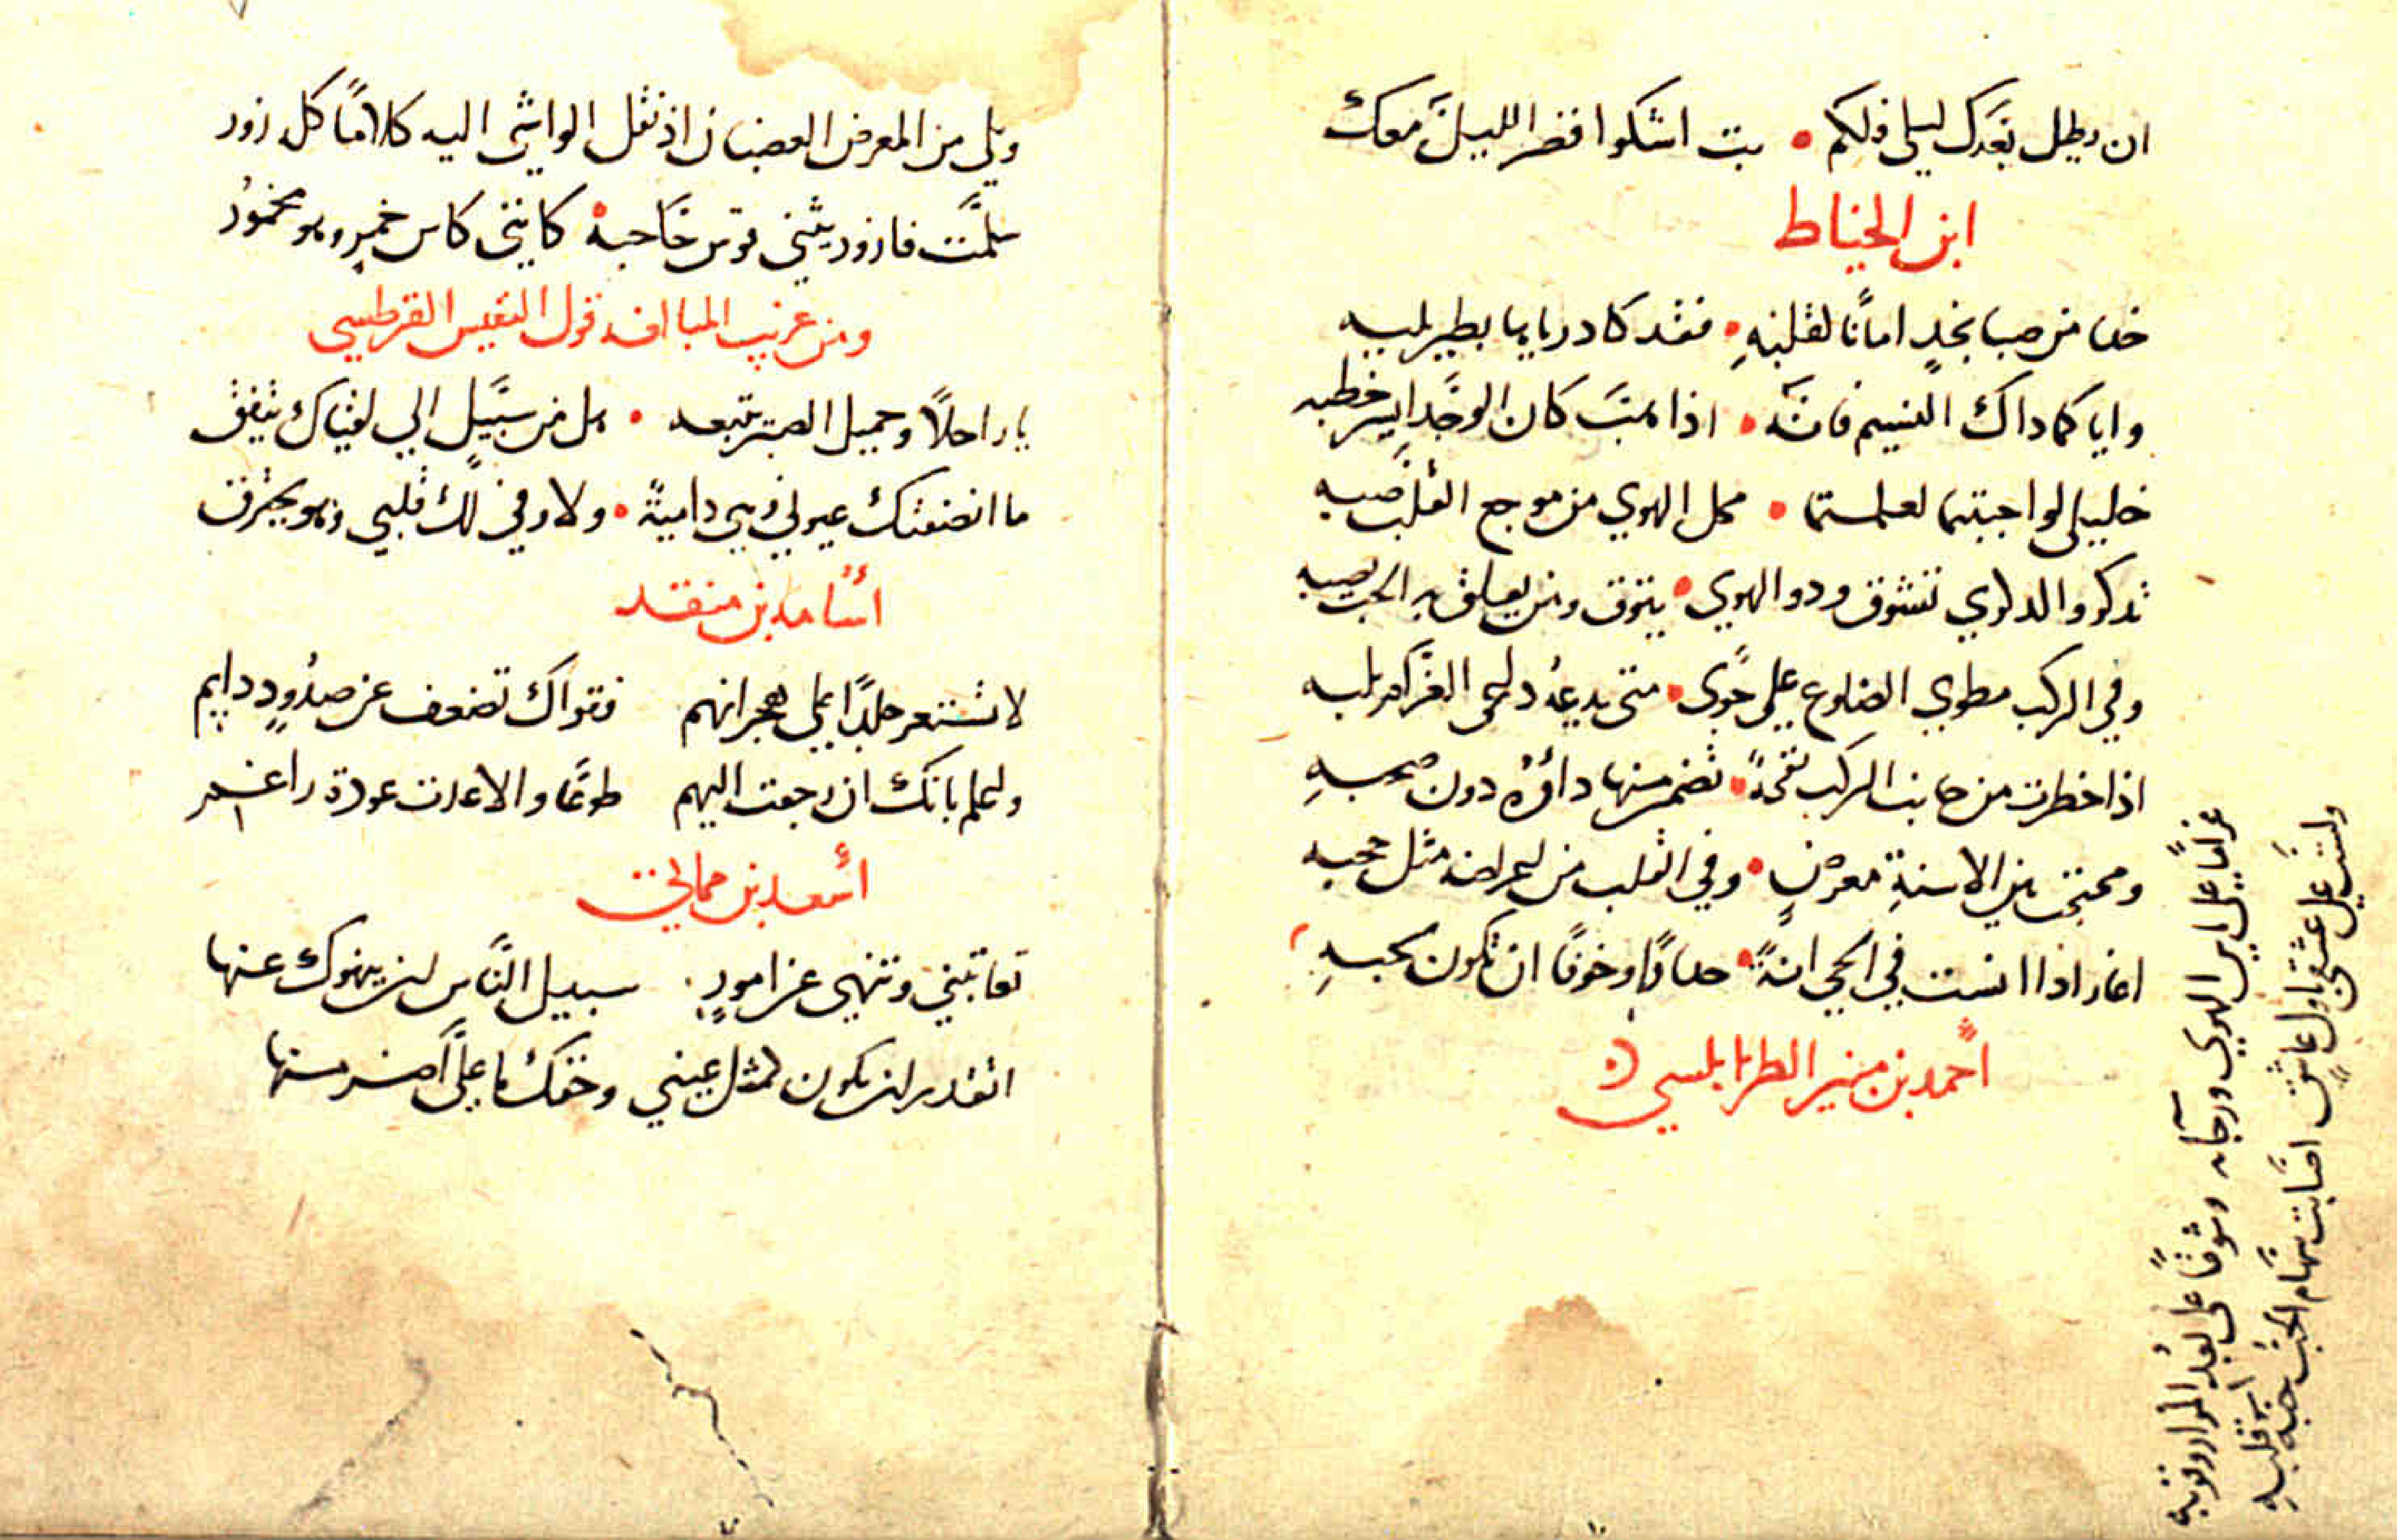 ان يطل بعدك ليلي فلكم • بت اشكوا قصر الليل معك
ابن الخياط
خدا من صبا نجد امانا لقلبه • فقد كاد رياها يطير بلبه
واياكما داك النسيم فانه • اذا هب كان الوجد ايسر خطبه
خليلي لو احببتما لعلمتما • محل الهوي من موجع القلب صبه
تدكر والدكري تشوق ودو الهوي • يتوق ومن يعلق به الحب يصبه
وفي الركب مطوي الضلوع علي جوي • متي يدعه داعي الغرام يلبه
اذا خطرت من جانب الركب نفحة • تضمن منها داؤه دون صحبه
ومحتجب بين الاسنة معرض • وفي القلب من اعراضه مثل حجبه
اغار اذا انست في الحي انة • حدارا وخوفا ان تكون لحبه
احمد بن منير الطرابلسي
غراما علي ياس الهوي ورجابه وشوقا علي بعد المزار وقربه
ولست علي عشقي باول عاشق اصابت سهام الحب حبة قلبه
ويلي من المعرض الغضبان اذ نقل الواشي اليه كلاما كله زور
سلمت فازور يثني قوس حاجبه • كانني كاس خمر وهو مخمور
ومن غريب قول النفيس القرطسي
يا راحلا وجميل الصبر يتبعه • هل من سبيل الي لقياك يتفق
ما انصفتك عيوني وهي دامية • ولا وفي لك قلبي وهو يحترق
اسامه بن منقد
لا تستعر جلدا علي هجرانهم فقواك تضعف عن صدود دايم
واعلم بانك ان رجعت اليهم طوعا والا عدت عودة راغم
اسعد بن مماتي
تعاتبني وتنهي عن امور سبيل الناس ان ينهوك عنها
اتقدر ان تكون لمثل عيني وحقك ما علي اضر منها